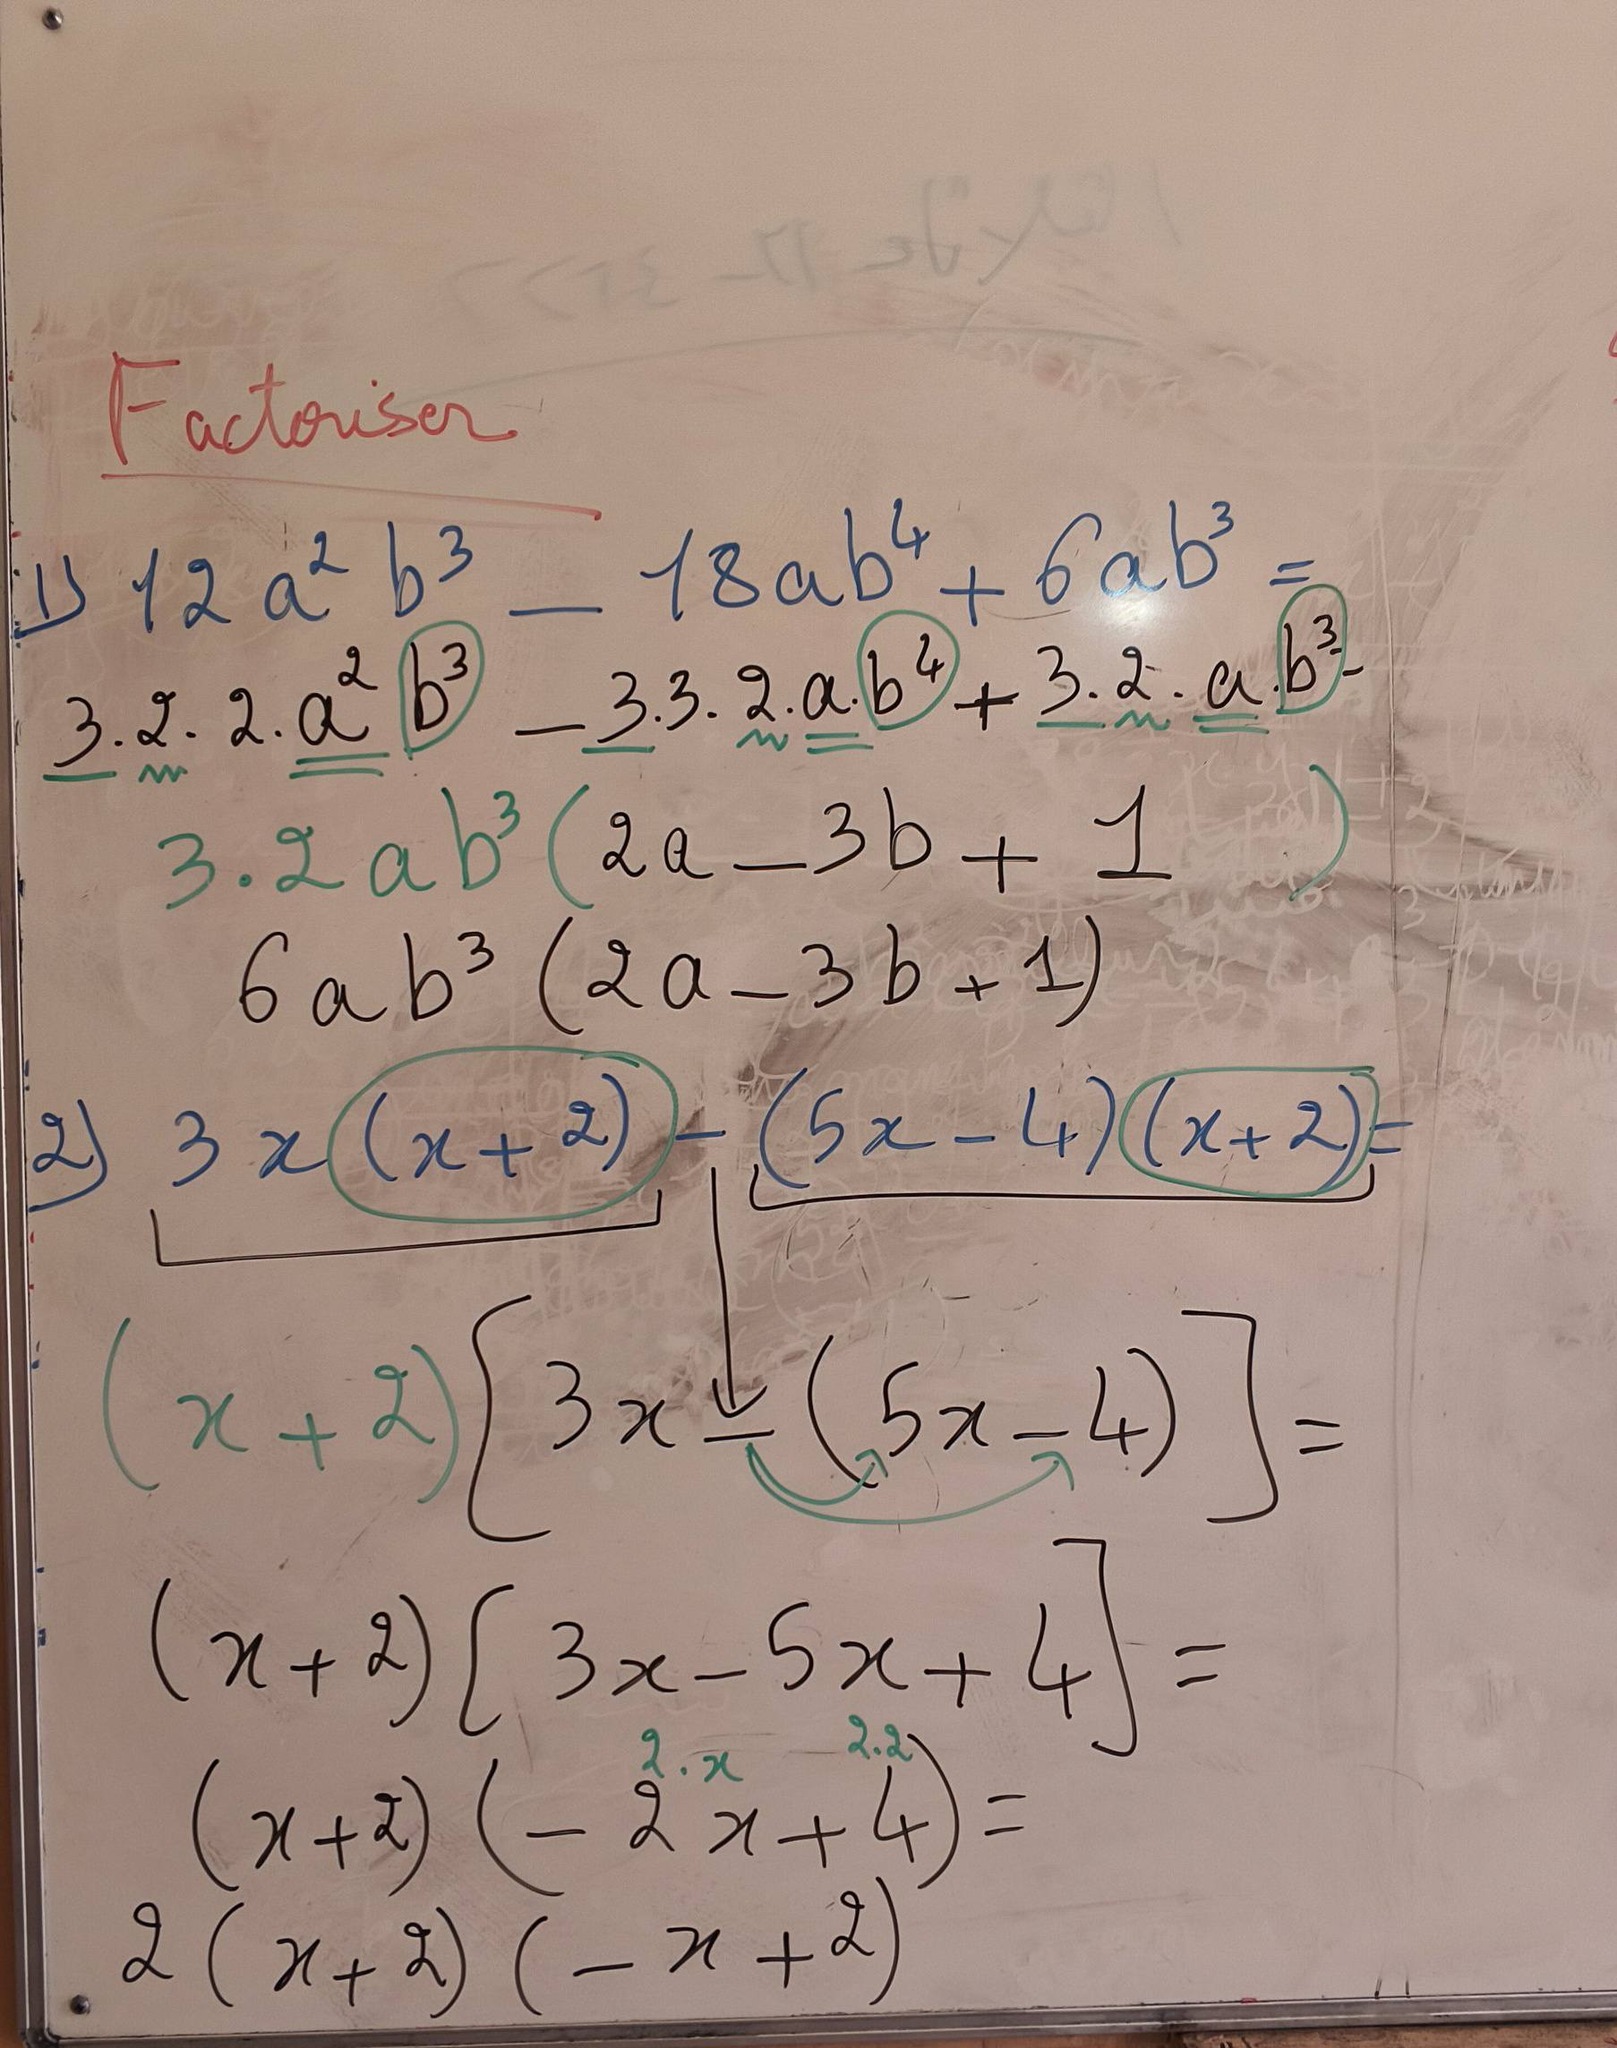 Factoriser
1) 12a² b³ – 18ab⁴ + 6ab³ =
3.2.2.a² b³ – 3.3.2.a.b⁴ + 3.2.a.b³ =
3.2ab³ (2a – 3b + 1)
6ab³ (2a – 3b + 1)
2) 3x(x+2) – (5x – 4)(x+2) =
(x+2)[3x – (5x – 4)] =
(x+2)[3x – 5x + 4] =
2.x 2.2
(x+2)(– 2x + 4) =
2(x+2)(– x + 2)